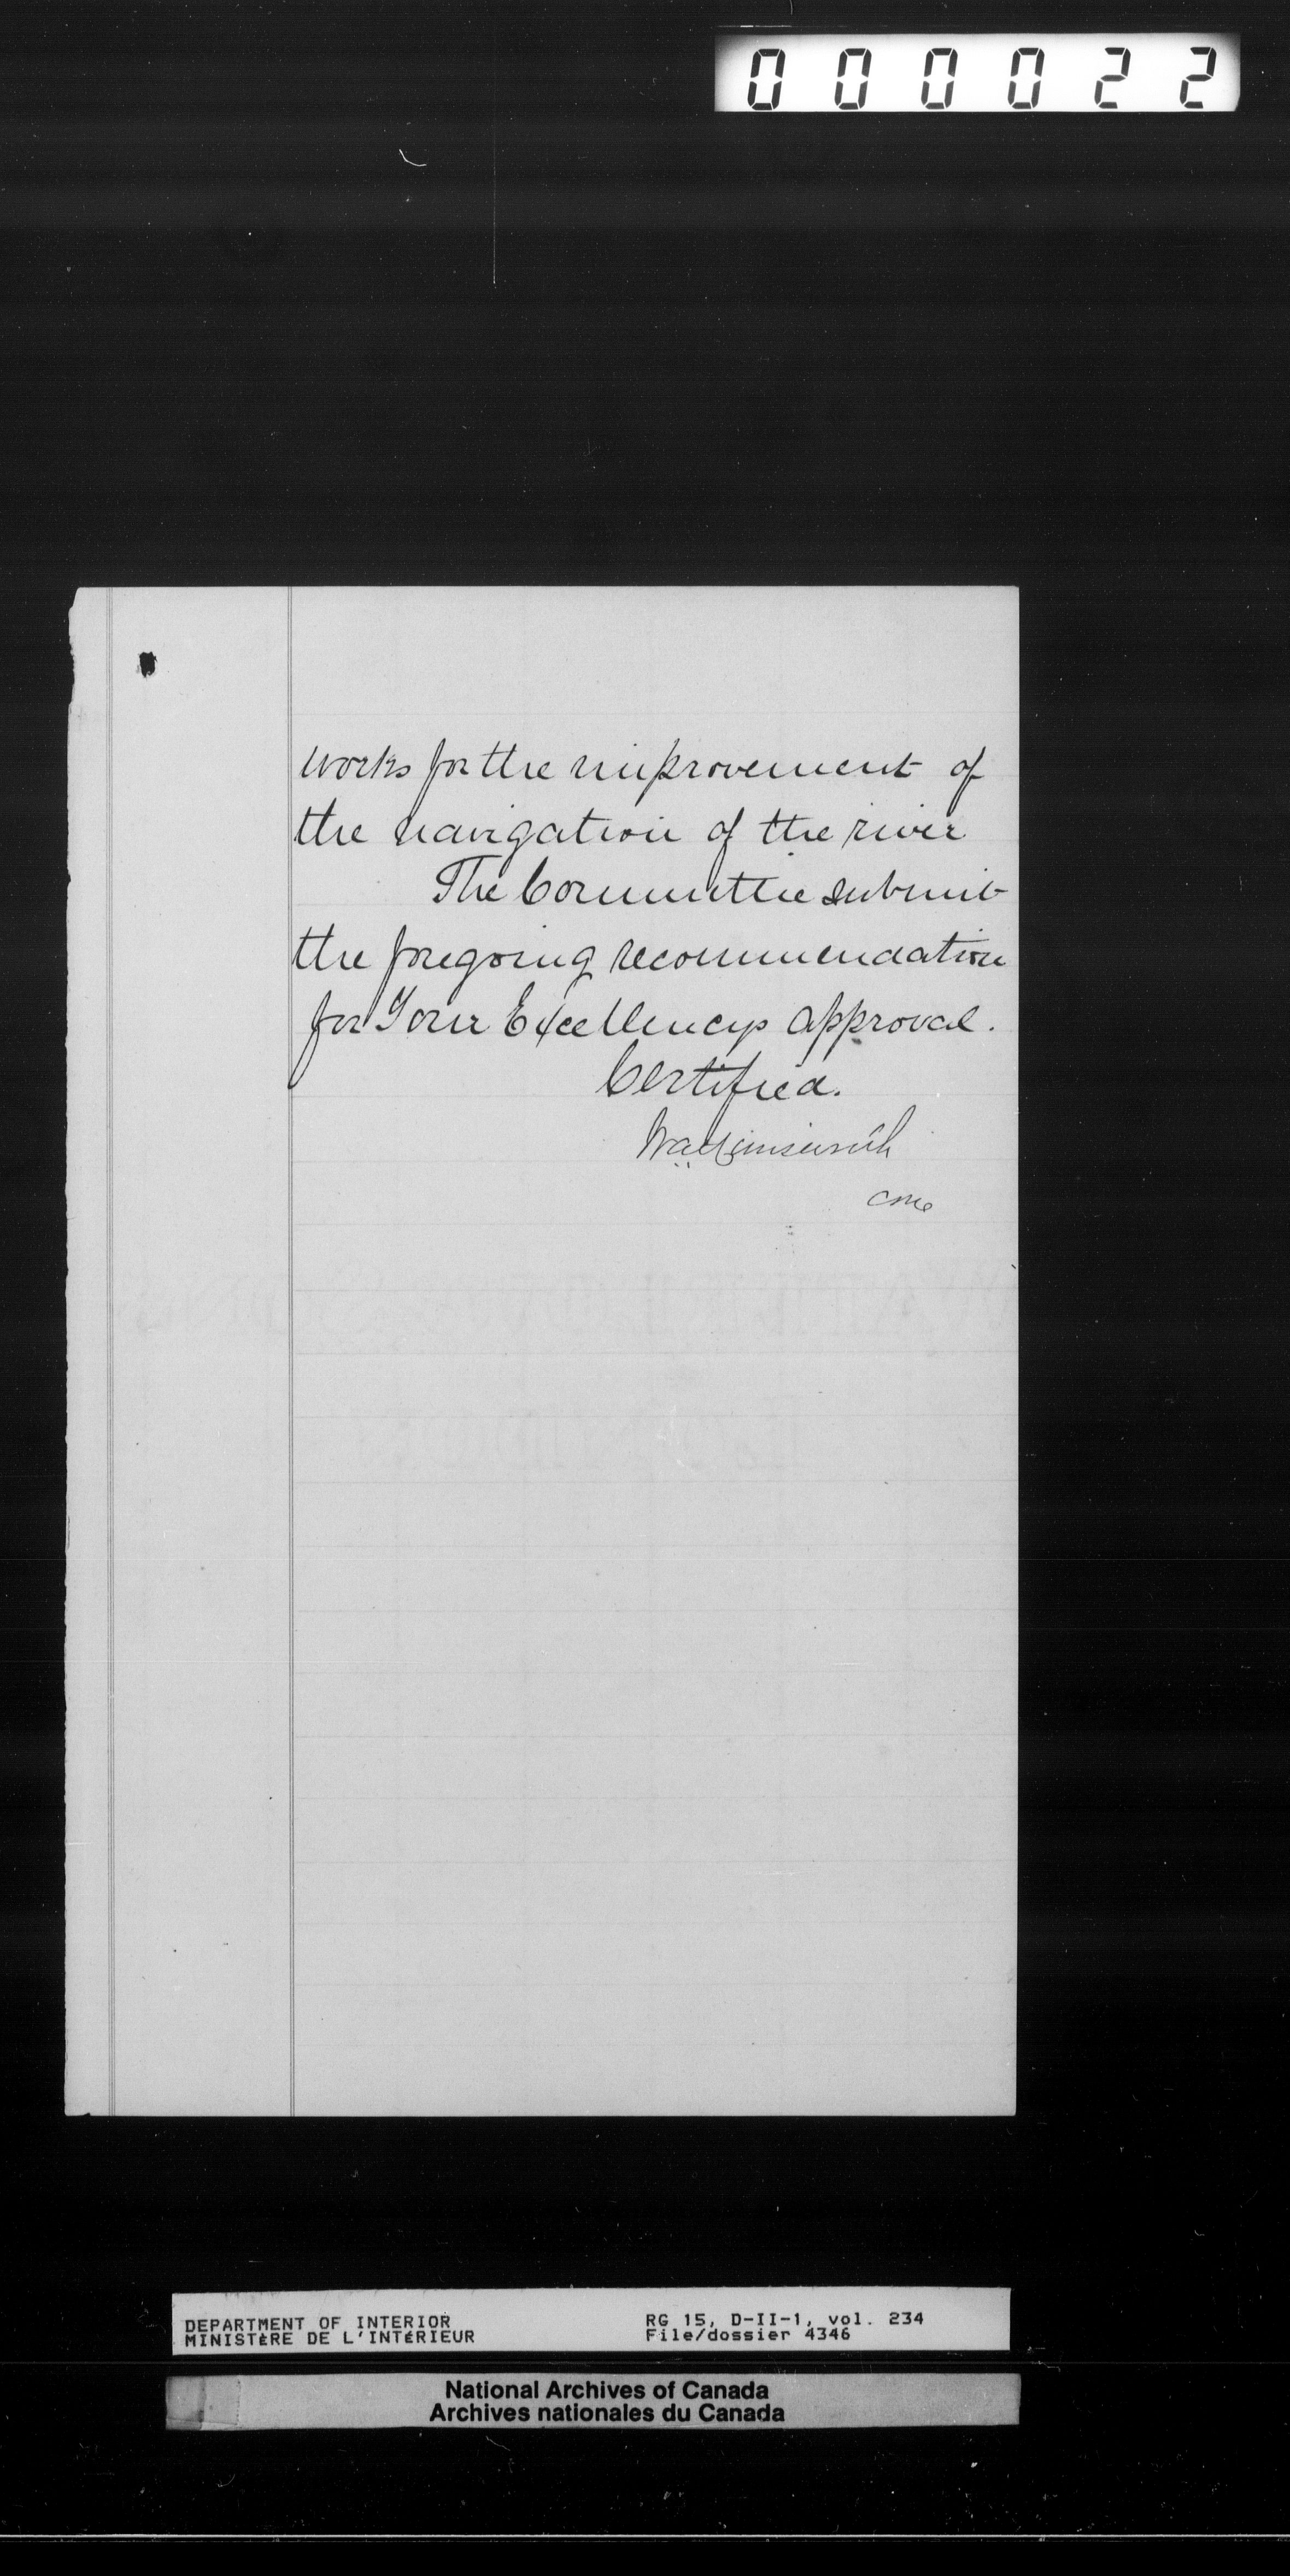 000022
works for the improvement of
the navigation of the river
The Committee submit
the foregoing recommendation
for Your Excellencys approval.
Certified.
DEPARTMENT OF INTERIOR
MINISTÈRE DE L'INTÉRIEUR
RG 15, D-II-1, vol. 234
File/dossier 4346
National Archives of Canada
Archives nationales du Canada